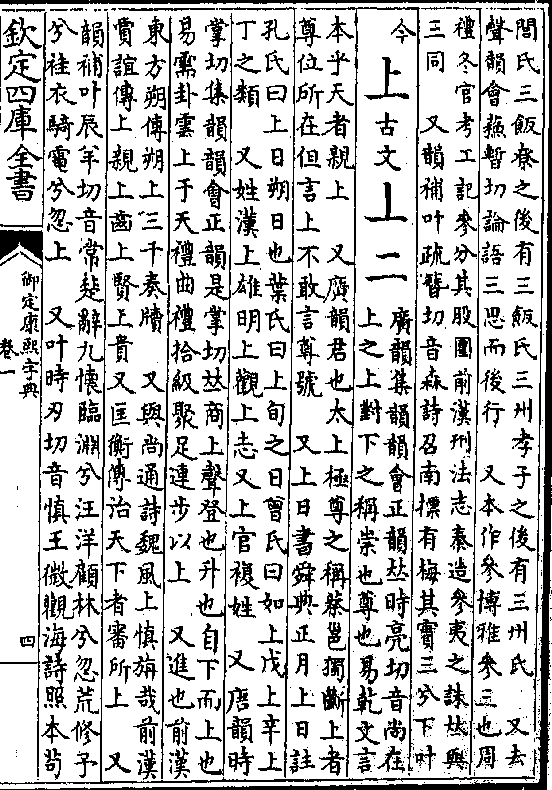 閭氏三飯尞之後有三飯氏三州孝子之後有三州氏　又去
聲韻會𠀤蘇暫切論語三思而後行　又本作參博雅參三也周
禮冬官考工記參分其股圍前漢刑法志秦造參夷之誅𠀤與
三同　又韻補叶疏簪切音森詩召南摽有梅其實三兮下叶
今
上古文丄二
廣韻集韻韻會正韻𠀤時亮切音尚在
上之上對下之稱崇也尊也易乾文言
本乎天者親上　又廣韻君也太上極尊之稱蔡邕獨斷上者
尊位所在但言上不敢言尊號　又上日書舜典正月上日註
孔氏曰上日朔日也葉氏曰上旬之日曾氏曰如上戊上辛上
丁之類　又姓漢上雄明上觀上志又上官複姓　又唐韻時
掌切集韻韻會正韻是掌切𠀤商上聲登也升也自下而上也
易需卦雲上于天禮曲禮拾級聚足連步以上　又進也前漢
東方朔傳朔上三千奏牘　又與尚通詩魏風上慎旃哉前漢
賈誼傳上親上齒上賢上貴又匡衡傳治天下者審所上　又
韻補叶辰羊切音常楚辭九懷臨淵兮汪洋顧林兮忽荒修予
兮袿衣騎電兮忽上　又叶時刃切音慎王微觀海詩照本苟
欽定四庫全書
御定康熙字典
卷一
四